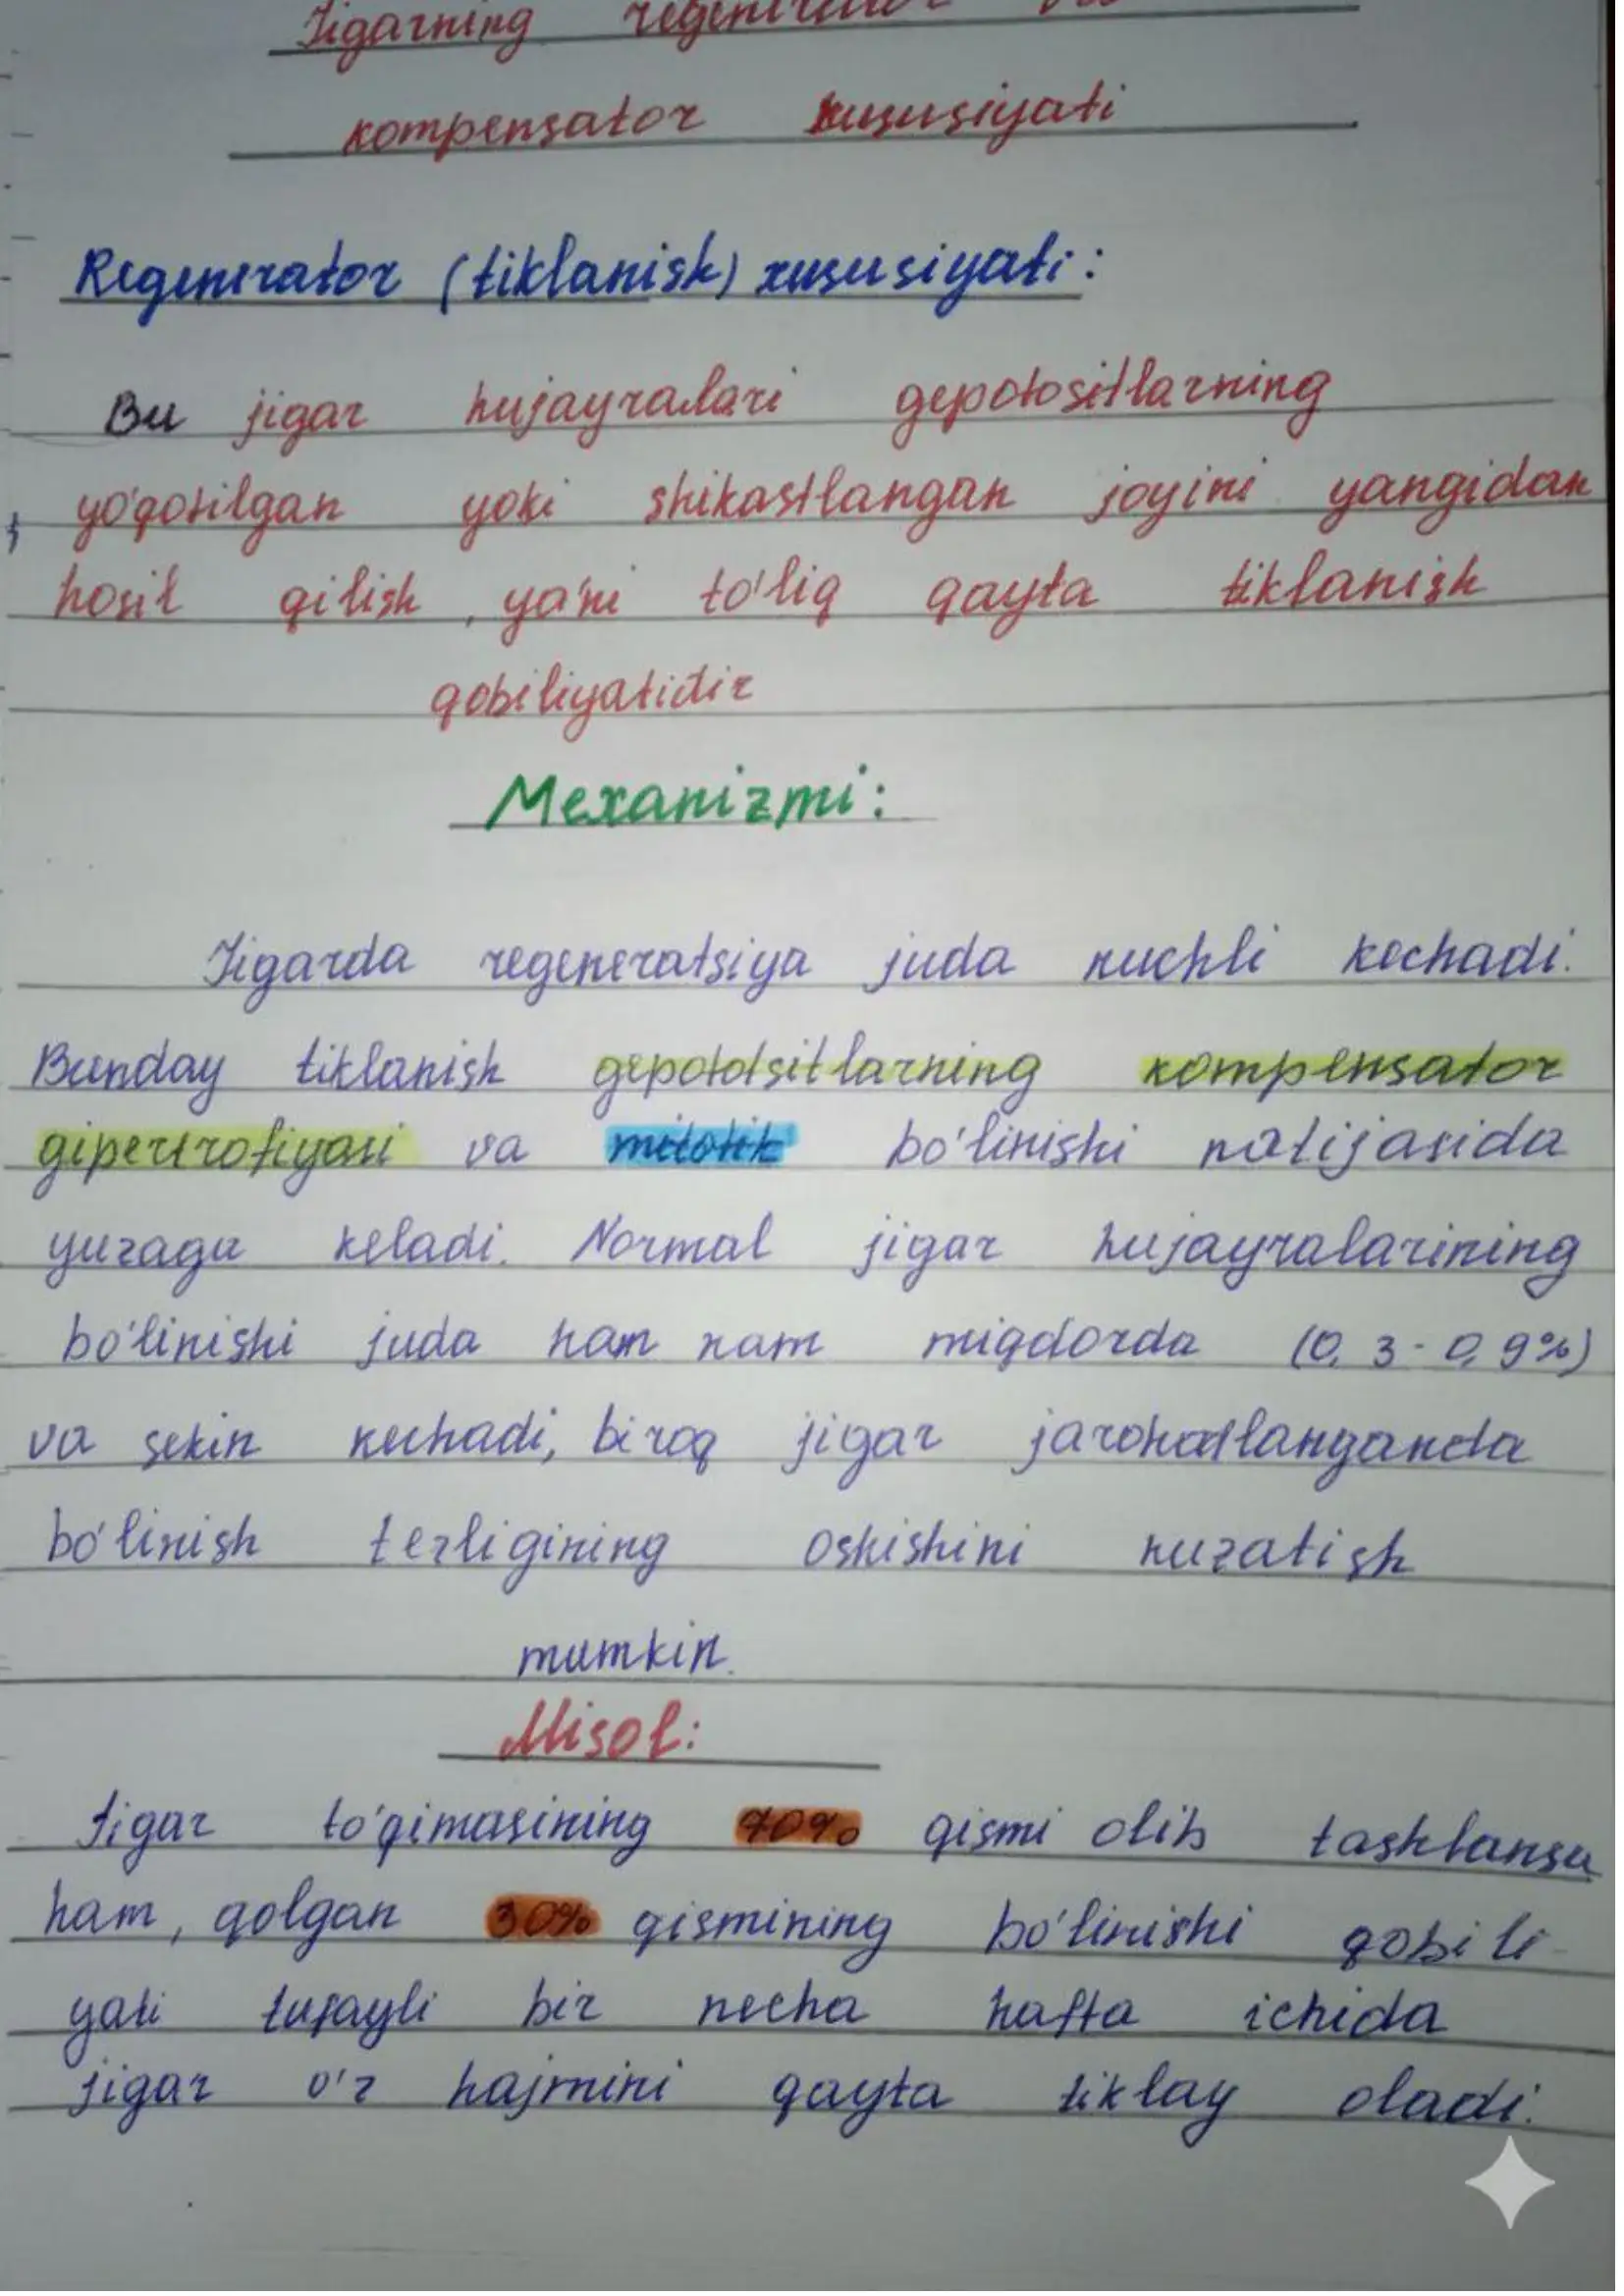 Jigarning regenerator
kompensator xususiyati
Regenerator (tiklanish) xususiyati:
Bu jigar hujayralari gepototsitlarning
yo'qotilgan yoki shikastlangan joyini yangidan
hosil qilish, ya'ni to'liq qayta tiklanish
qobiliyatidir
Mexanizmi:
Jigarda regeneratsiya juda kuchli kechadi.
Bunday tiklanish gepototsitlarning kompensator
gipertrofiyasi va mitotik bo'linishi natijasida
yuzaga keladi. Normal jigar hujayralarining
bo'linishi juda ham kam miqdorda (0,3-0,9%)
va sekin kechadi, biroq jigar jarohatlanganda
bo'linish tezligining oshishini kuzatish
mumkin.
Misol:
Jigar to'qimasining 70% qismi olib tashlansa
ham, qolgan 30% qismining bo'linishi qobili-
yati tufayli bir necha hafta ichida
jigar o'z hajmini qayta tiklay oladi.